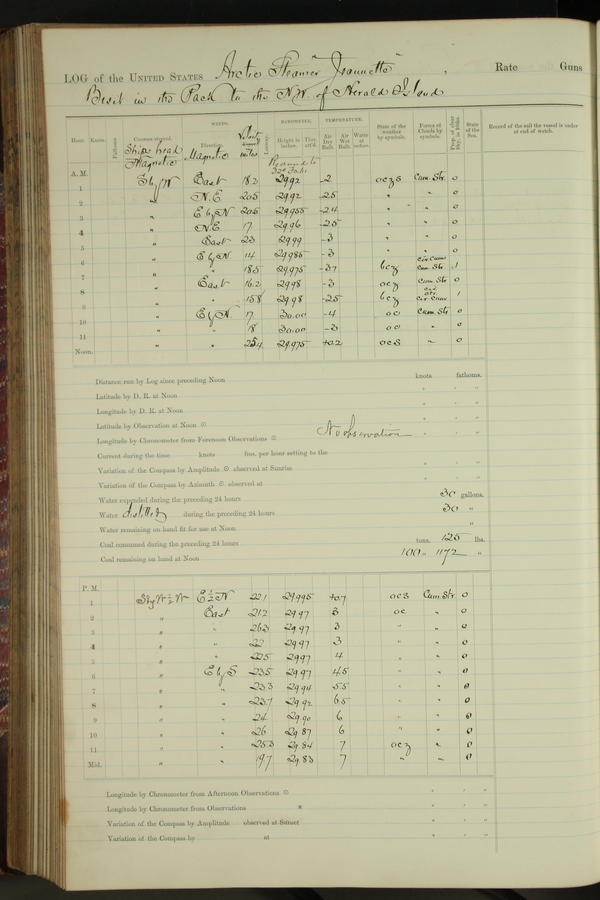 LOG of the UNITED STATES Arctic Steamer "Jeannette", Rate Guns
Beset in the Pack to the N.W. of Herald Island
Hour. Knots. Fathoms. Courses steered. WINDS. Leeway. BAROMETER. TEMPERATURE. State of the weather by symbols. Forms of Clouds by symbols. Prop. of clear sky, in 10ths. State of the Sea. Record of the sail the vessel is under at end of watch.
Ship's head Magnetic Direction. Magnetic Velocity Height in inches. Ther. att'd. Air Dry Bulb. Air Wet Bulb. Water at surface.
Reduced to 32° Fahr.
A. M.
1 S by W East 18.2 29.92 -2 oczs Cum. Str. 0
2 " N.E. 20.5 29.92 -2.5 " " 0
3 " E by N 20.5 29.955 -2.4 " " 0
4 " N.E. 17 29.96 -2.5 " " 0
5 " East 23 29.99 -3 " " 0
6 " E by N 14 29.985 -3 " " 0
7 " " 18.5 29.975 -3.7 bcz Cir. Cum. Cum. Str. 1
8 " East 16.2 29.98 -3 ocz Cum. Str 0
9 " " 15.8 29.98 -2.5 bcz Cir. Str. Cir. Cum. 1
10 " E by N 17 30.00 -4 oc Cum. Str 0
11 " " 18 30.00 -3 oc " 0
Noon. " " 23.4 29.975 +0.2 ocs " 0
Distance run by Log since preceding Noon knots fathoms.
Latitude by D. R. at Noon ° ' "
Longitude by D. R. at Noon ° ' "
Latitude by Observation at Noon ☉ ° ' "
Longitude by Chronometer from Forenoon Observations ☉ No observation ° ' "
Current during the time knots fms. per hour setting to the
Variation of the Compass by Amplitude ☉ observed at Sunrise ° ' "
Variation of the Compass by Azimuth ☉ observed at ° ' "
Water expended during the preceding 24 hours 30 gallons.
Water distilled during the preceding 24 hours 30 "
Water remaining on hand fit for use at Noon "
Coal consumed during the preceding 24 hours tons. 125 lbs.
Coal remaining on hand at Noon 100 " 1172 "
P. M.
1 S by W ½ W E ½ N 22.1 29.995 +0.7 ocs Cum. Str. 0
2 " East 21.2 29.97 3 oc " 0
3 " " 26.3 29.97 3 " " 0
4 " " 22 29.97 3 " " 0
5 " " 22.5 29.97 4 " " 0
6 " E by S 23.5 29.97 4.5 " " 0
7 " " 23.3 29.94 5.5 " " 0
8 " " 23.7 29.92 6.5 " " 0
9 " " 24 29.90 6 " " 0
10 " " 26 29.87 6 " " 0
11 " " 25.3 29.84 7 ocz " 0
Mid. " " 19.7 29.83 7 " " 0
Longitude by Chronometer from Afternoon Observations ☉ ° ' "
Longitude by Chronometer from Observations * ° ' "
Variation of the Compass by Amplitude observed at Sunset ° ' "
Variation of the Compass by at ° ' "